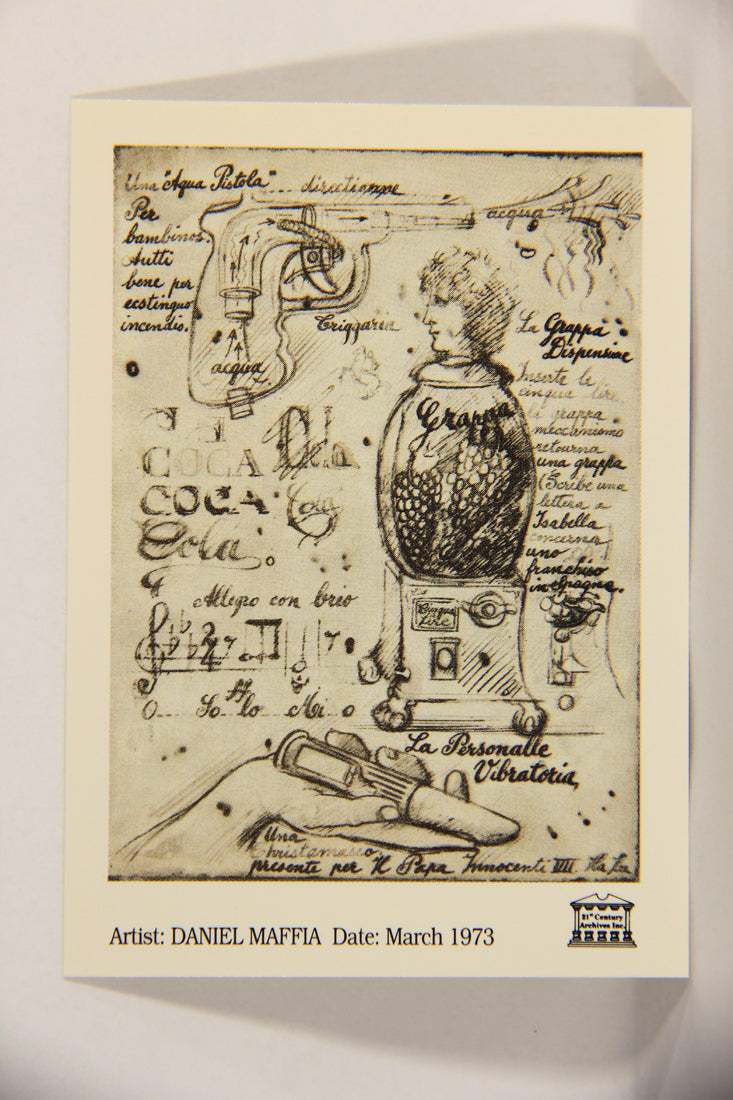 Una "Aqua Pistola" ... directionne
Per
bambinos.
Autti
bene per
ecstinguo
incendio.
acqua
acqua
Triggaria
La Grappa
Dispensine
Inserte le
cinqua lire,
grappa
meccanismo
retourna
una grappa
(Scribe una
lettera a
Isabella
concerna
uno
franchiso
in Spagna.
Grappa
COCA
COCA
Cola
Cola
Allegro con brio
2
4
ff
O... So lo Mi o
Cinqua
Lire
La Personalle
Vibratoria
Una
Christamasso
presente per il Papa Innocenti VIII. Ha ha
Artist: DANIEL MAFFIA Date: March 1973
21st Century
Archives Inc.